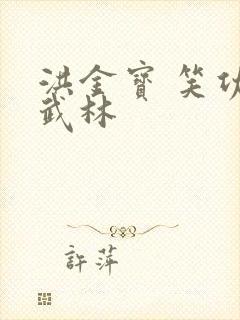 洪金寶 笑傲
武林
許萍